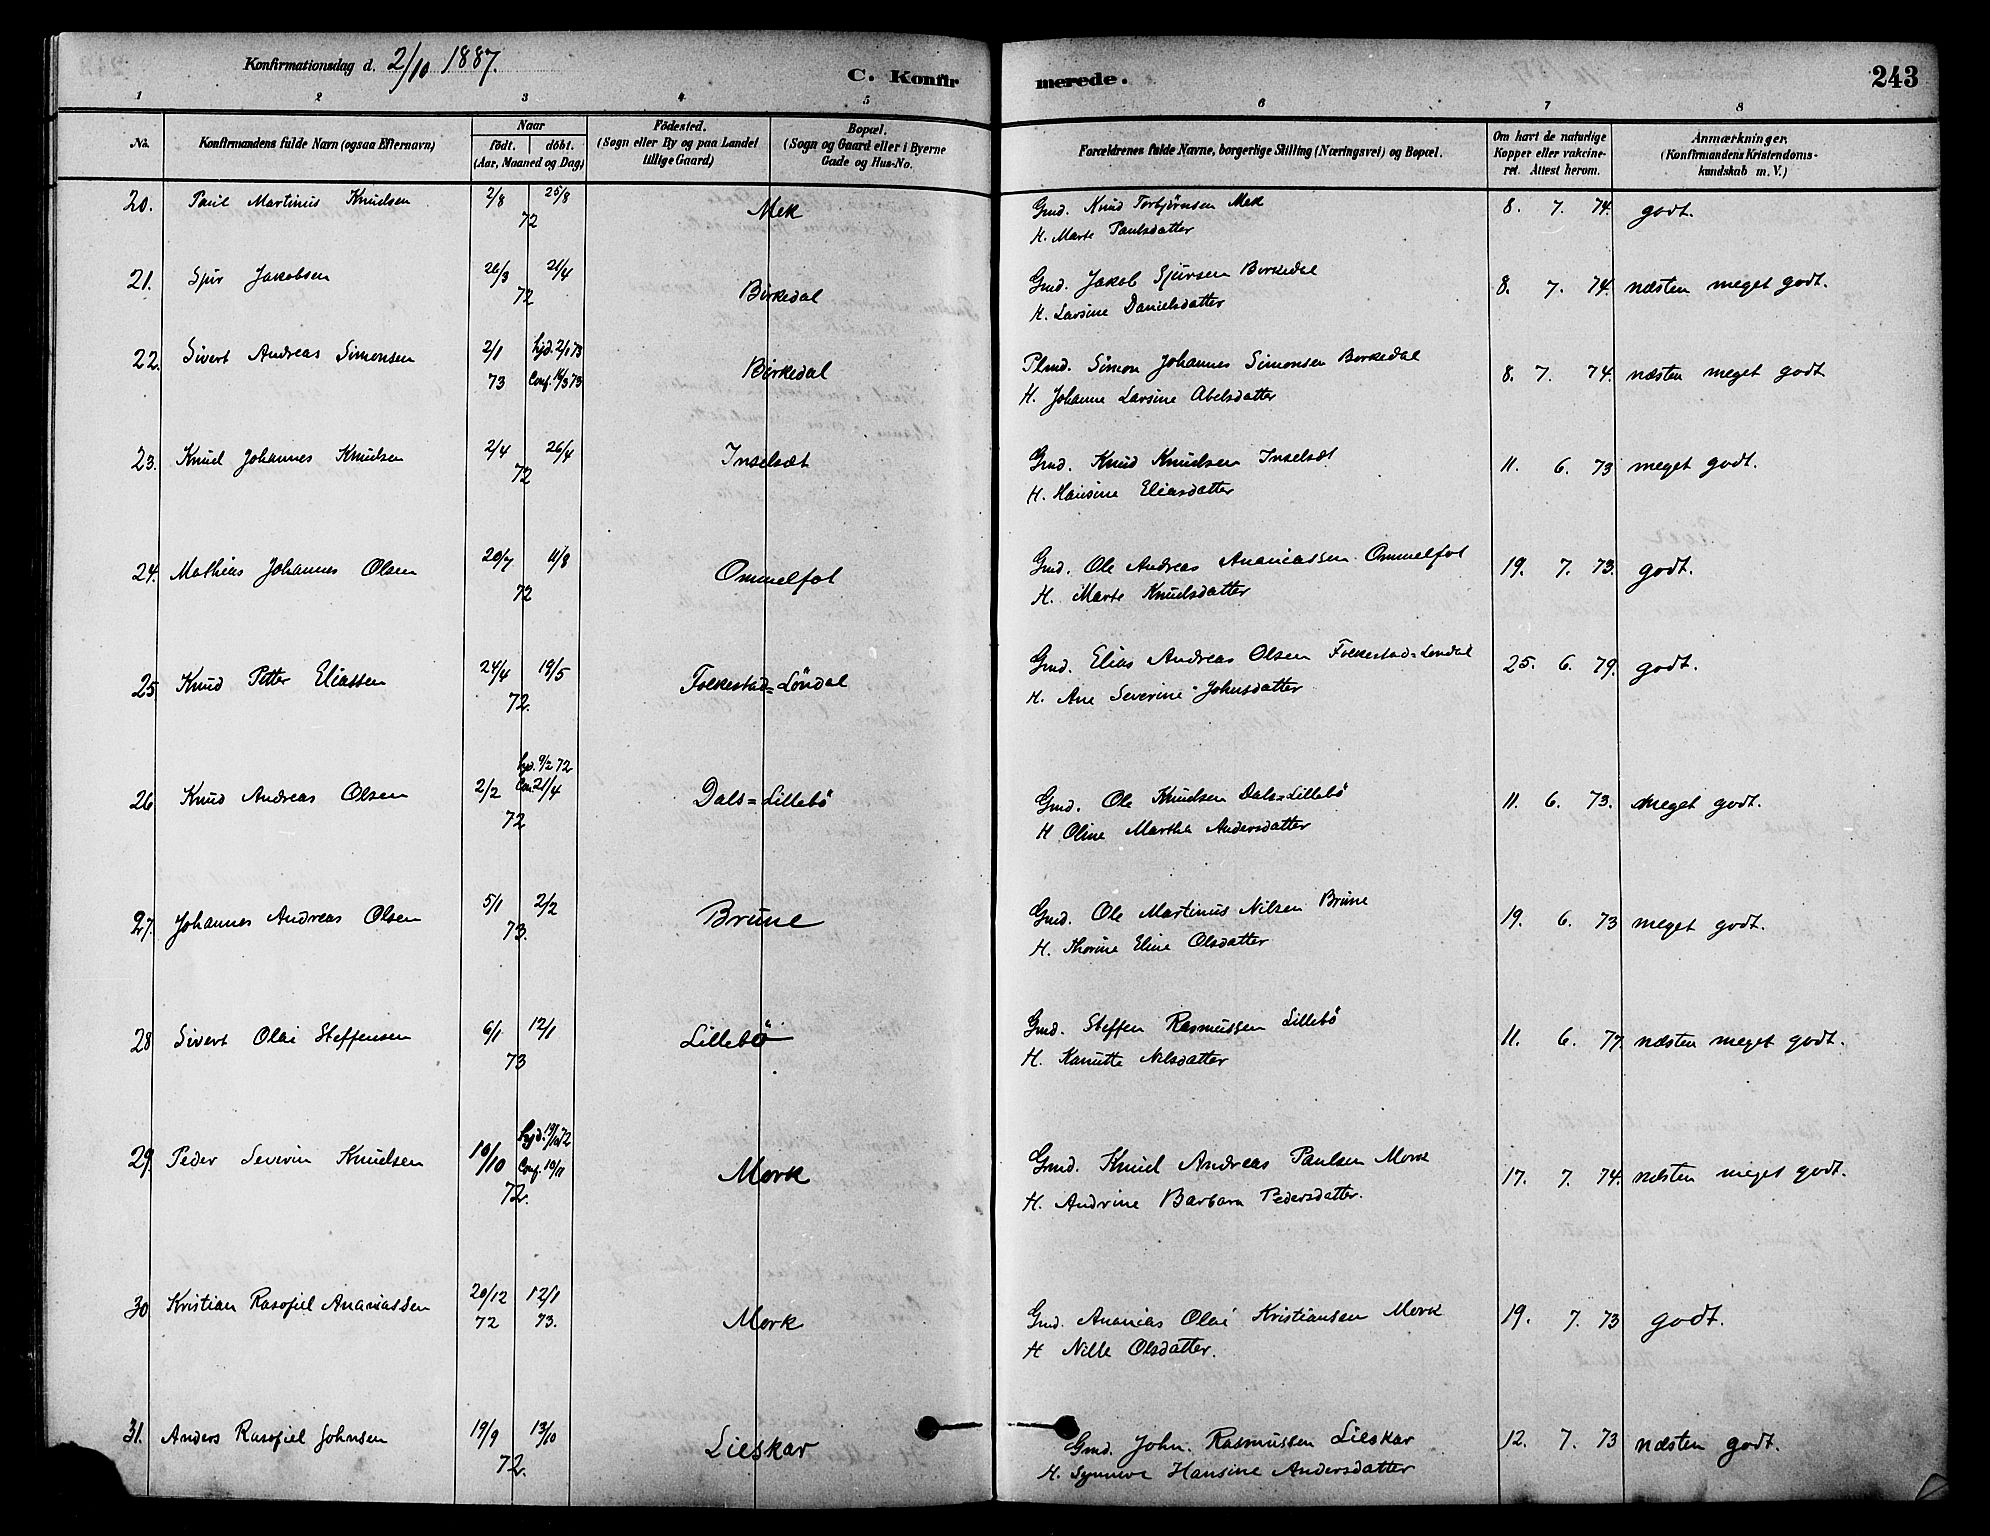 Konfirmationsdag d. 2/10 1887.
C. Konfirmerede.
243
1 2 3 4 5 6 7 8
No.
Konfirmandens fulde Navn (ogsaa Efternavn)
Naar
Födt. döbt.
(Aar, Maaned og Dag)
Födested.
(Sogn eller By og paa Landet
tillige Gaard)
Bopæl.
(Sogn og Gaard eller i Byerne
Gade og Hus-No.
Forældrenes fulde Navne, borgerlige Stilling (Næringsvei) og Bopæl.
Om havt de naturlige
Kopper eller vakcine-
ret. Attest herom.
Anmærkninger.
(Konfirmandens Kristendoms-
kundskab m. V.)
20. Paul Martinus Knudsen 2/8 25/8 72 Mek Gmd. Knud Torbjørnsen Mek 8. 7. 74. godt.
H. Marte Paulsdatter
21. Sjur Jakobsen 26/3 21/4 72 Birkedal Gmd. Jakob Sjursen Birkedal 8. 7. 74. næsten meget godt.
H. Larsine Danielsdatter
22. Sivert Andreas Simonsen 2/1 hjd. 2/1 73 Birkedal Plmd. Simon Johannes Simonsen Birkedal 8. 7. 74. næsten meget godt
73 Conf. 16/3 73 H. Johanne Larsine Abelsdatter
23. Knud Johannes Knudsen 2/4 26/4 72 Inselsæt Gmd. Knud Knudsen Inselsæt 11. 6. 73 meget godt.
H. Hansine Eliasdatter
24. Mathias Johannes Olsen 20/7 11/8 72 Ommelfot Gmd. Ole Andreas Ananiassen Ommelfot 19. 7. 73. godt.
H. Marte Knudsdatter
25 Knud Petter Eliassen 24/4 19/5 72. Folkestad=Löndal Gmd. Elias Andreas Olsen Folkestad=Löndal 25. 6. 79. godt.
H. Ane Severine Johnsdatter
hjd. 9/2 72
26 Knud Andreas Olsen 2/2 Con. 21/4 72 Dals=Lillebö Gmd. Ole Knudsen Dals=Lillebö 11. 6. 73. meget godt.
H Oline Martha Andersdatter
27. Johannes Andreas Olsen 5/1 2/2 73. Brune Gmd. Ole Martinus Nilsen Brune 19. 6. 73 meget godt.
H. Thorine Eline Olsdatter
28 Sivert Olai Steffensen 6/1 12/1 73 Lillebö Gmd. Steffen Rasmussen Lillebö 11. 6. 77. næsten meget godt.
H. Kanutte Nilsdatter
hjd. 19/10 72
29. Peder Severin Knudsen 10/10 Conf. 10/11 72. Mork Gmd. Knud Andreas Paulsen Mork 17. 7. 74. næsten meget godt.
H. Andrine Barbara Pedersdatter.
30 Kristian Rasofiel Ananiassen 20/12 12/1 Mork Gmd. Ananias Olai Kristiansen Mork 19. 7. 73 godt.
72 73. H Nille Olsdatter.
31. Anders Rasofiel Johnsen 19/9 13/10 72. Lieskar Gmd. John. Rasmussen Lieskar 12. 7. 73 næsten godt.
H. Synneve Hansine Andersdatter